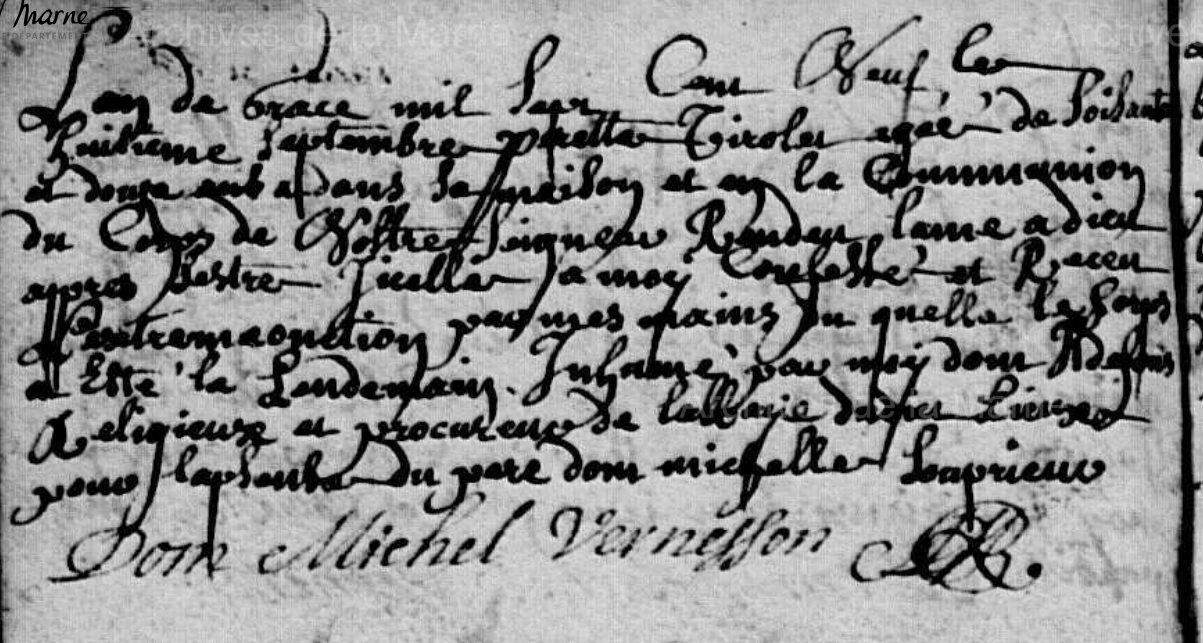 Marne
DÉPARTEMENT
Archives de la Marne
Lan de Grace mil Sept Cent Neuf le
huitieme Septembre perette Tirolet agéé de soisante
et douze ans a dans sa maison et en la Communion
du Corps de Nostre Seigneur Rendu lame a dieu
appres Sestre Jcelle a moy Confessée et Receu
Lextremaonction par mes mains du quelle le Corps
a Esté le Lendemain Inhumé par moy dom
Religieux et procureur de labbaye dudict
pour lapsence du pere dom michelle Souprieur
Dom Michel Vernesson